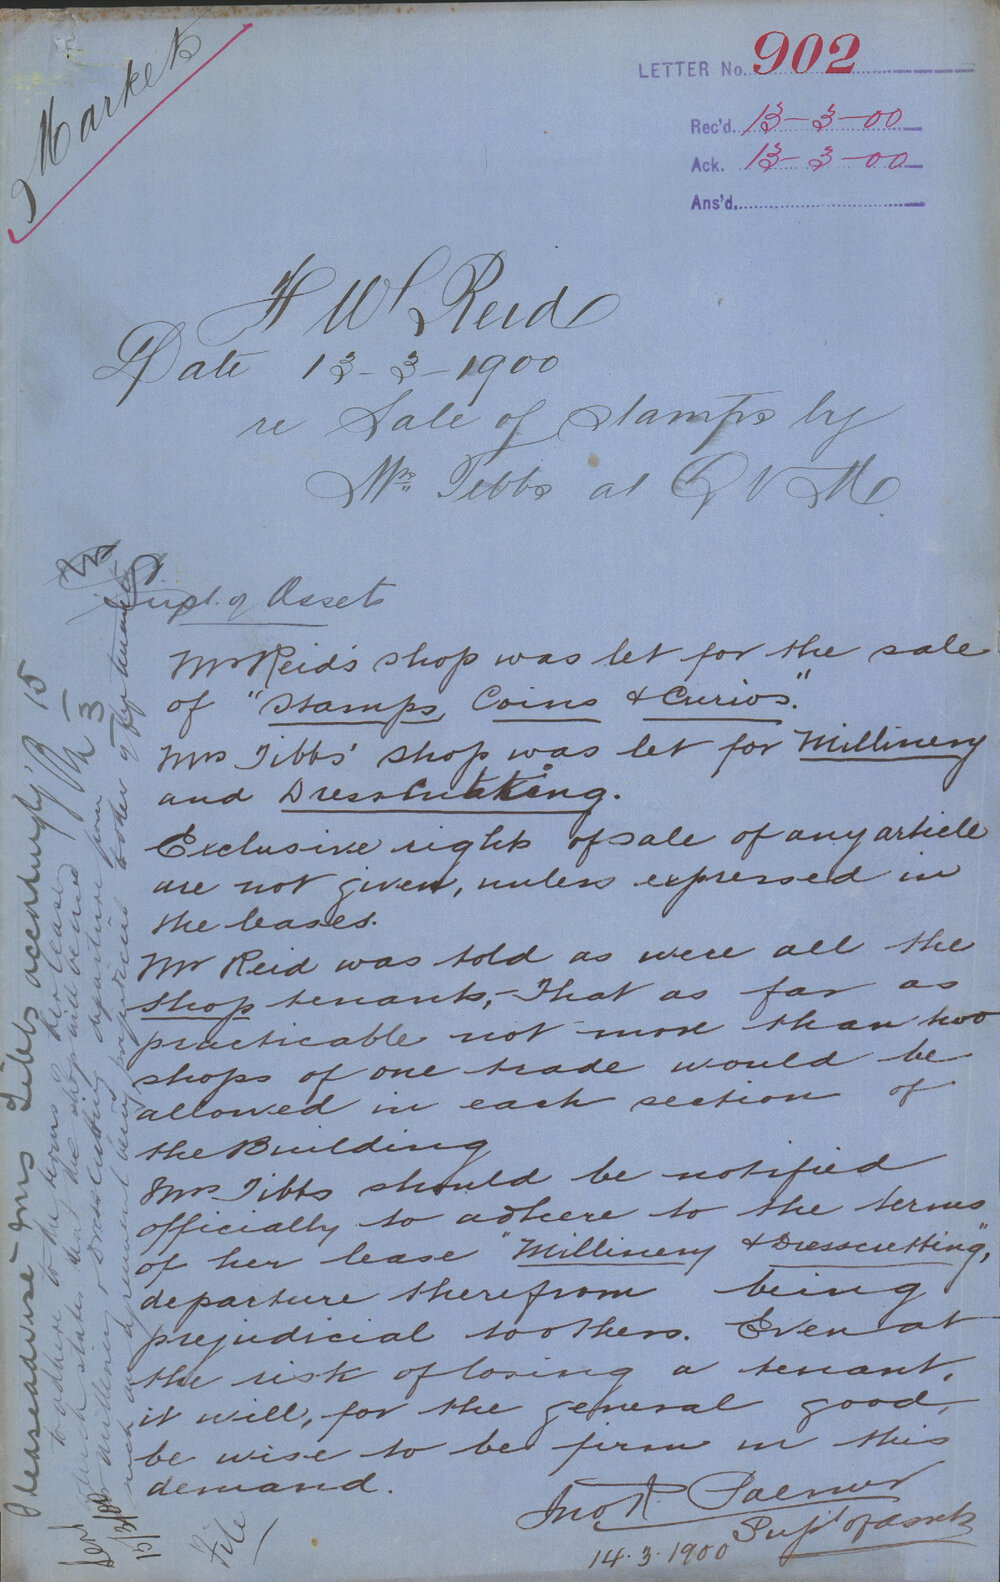 Markets
LETTER No. 902
Rec'd. 13-3-00
Ack. 13-3-00
Ans'd.
H W Reid
Date 13-3-1900
re Sale of Stamps by
Mrs Tibbs at Q V M
Supt. of Assets
Mr Reid's shop was let for the sale
of "Stamps, Coins & Curios."
Mrs Tibbs' shop was let for Millinery
and Dresscutting.
Exclusive rights of sale of any article
are not given, unless expressed in
the leases.
Mr Reid was told as were all the
shop tenants, - That as far as
practicable not more than two
shops of one trade would be
allowed in each section of
the Building
Mrs Tibbs should be notified
officially to adhere to the terms
of her lease "Millinery & Dresscutting",
departure therefrom being
prejudicial to others. Even at
the risk of losing a tenant,
it will, for the general good,
be wise to be firm in this
demand.
Jno R. Palmer
Supt of Assets
14.3.1900
Please advise Mrs Tibbs accordingly 15/3
to adhere to the terms of her lease
which states that the shop will be used
for millinery & dresscutting departure from
such an agreement being prejudicial to other of my tenants
15/3/00
File